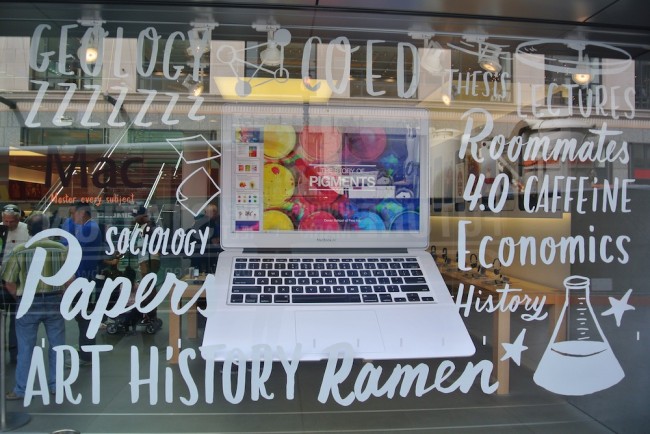 GEOLOGY
COED
ZZZZZZZ
THESIS
LECTURES
Roommates
Mac
Master every subject.
4.0 CAFFEINE
THE STORY OF
PIGMENTS
SOCIOLOGY
Economics
Papers
History
ART HISTORY
Ramen